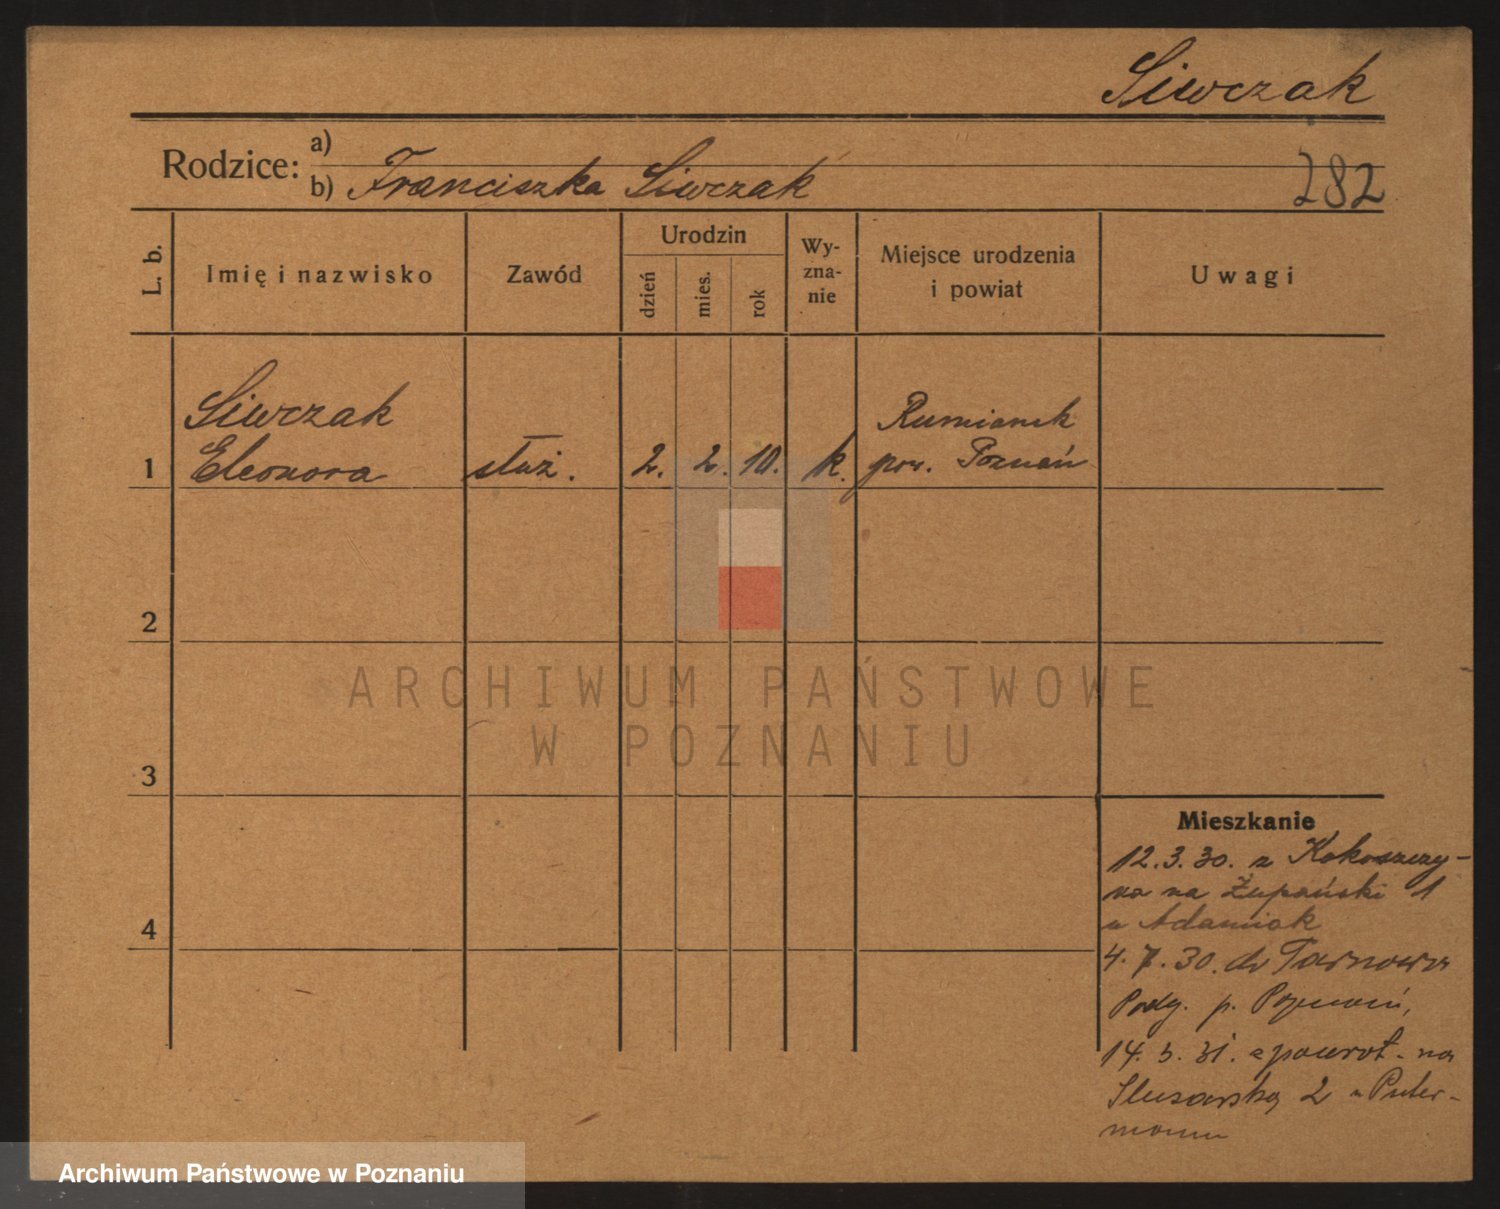 Siwczak
Rodzice: a)
b) Franciszka Siwczak
282
L. b.
Imię i nazwisko
Zawód
Urodzin
dzień
mies.
rok
Wy-
zna-
nie
Miejsce urodzenia
i powiat
Uwagi
Siwczak
Rumianek
1
Eleonora
służ.
2.
2.
10.
k.
pow. Poznań
2
3
4
Mieszkanie
12.3.30. z Kokoszczy-
na na Żupański 1
u Adamiak
4.7.30. do Tarnowa
Podg. p. Poznań,
14.5.31. z powrot. na
Slusarską 2 u Puter-
mann
ARCHIWUM PAŃSTWOWE
W POZNANIU
Archiwum Państwowe w Poznaniu